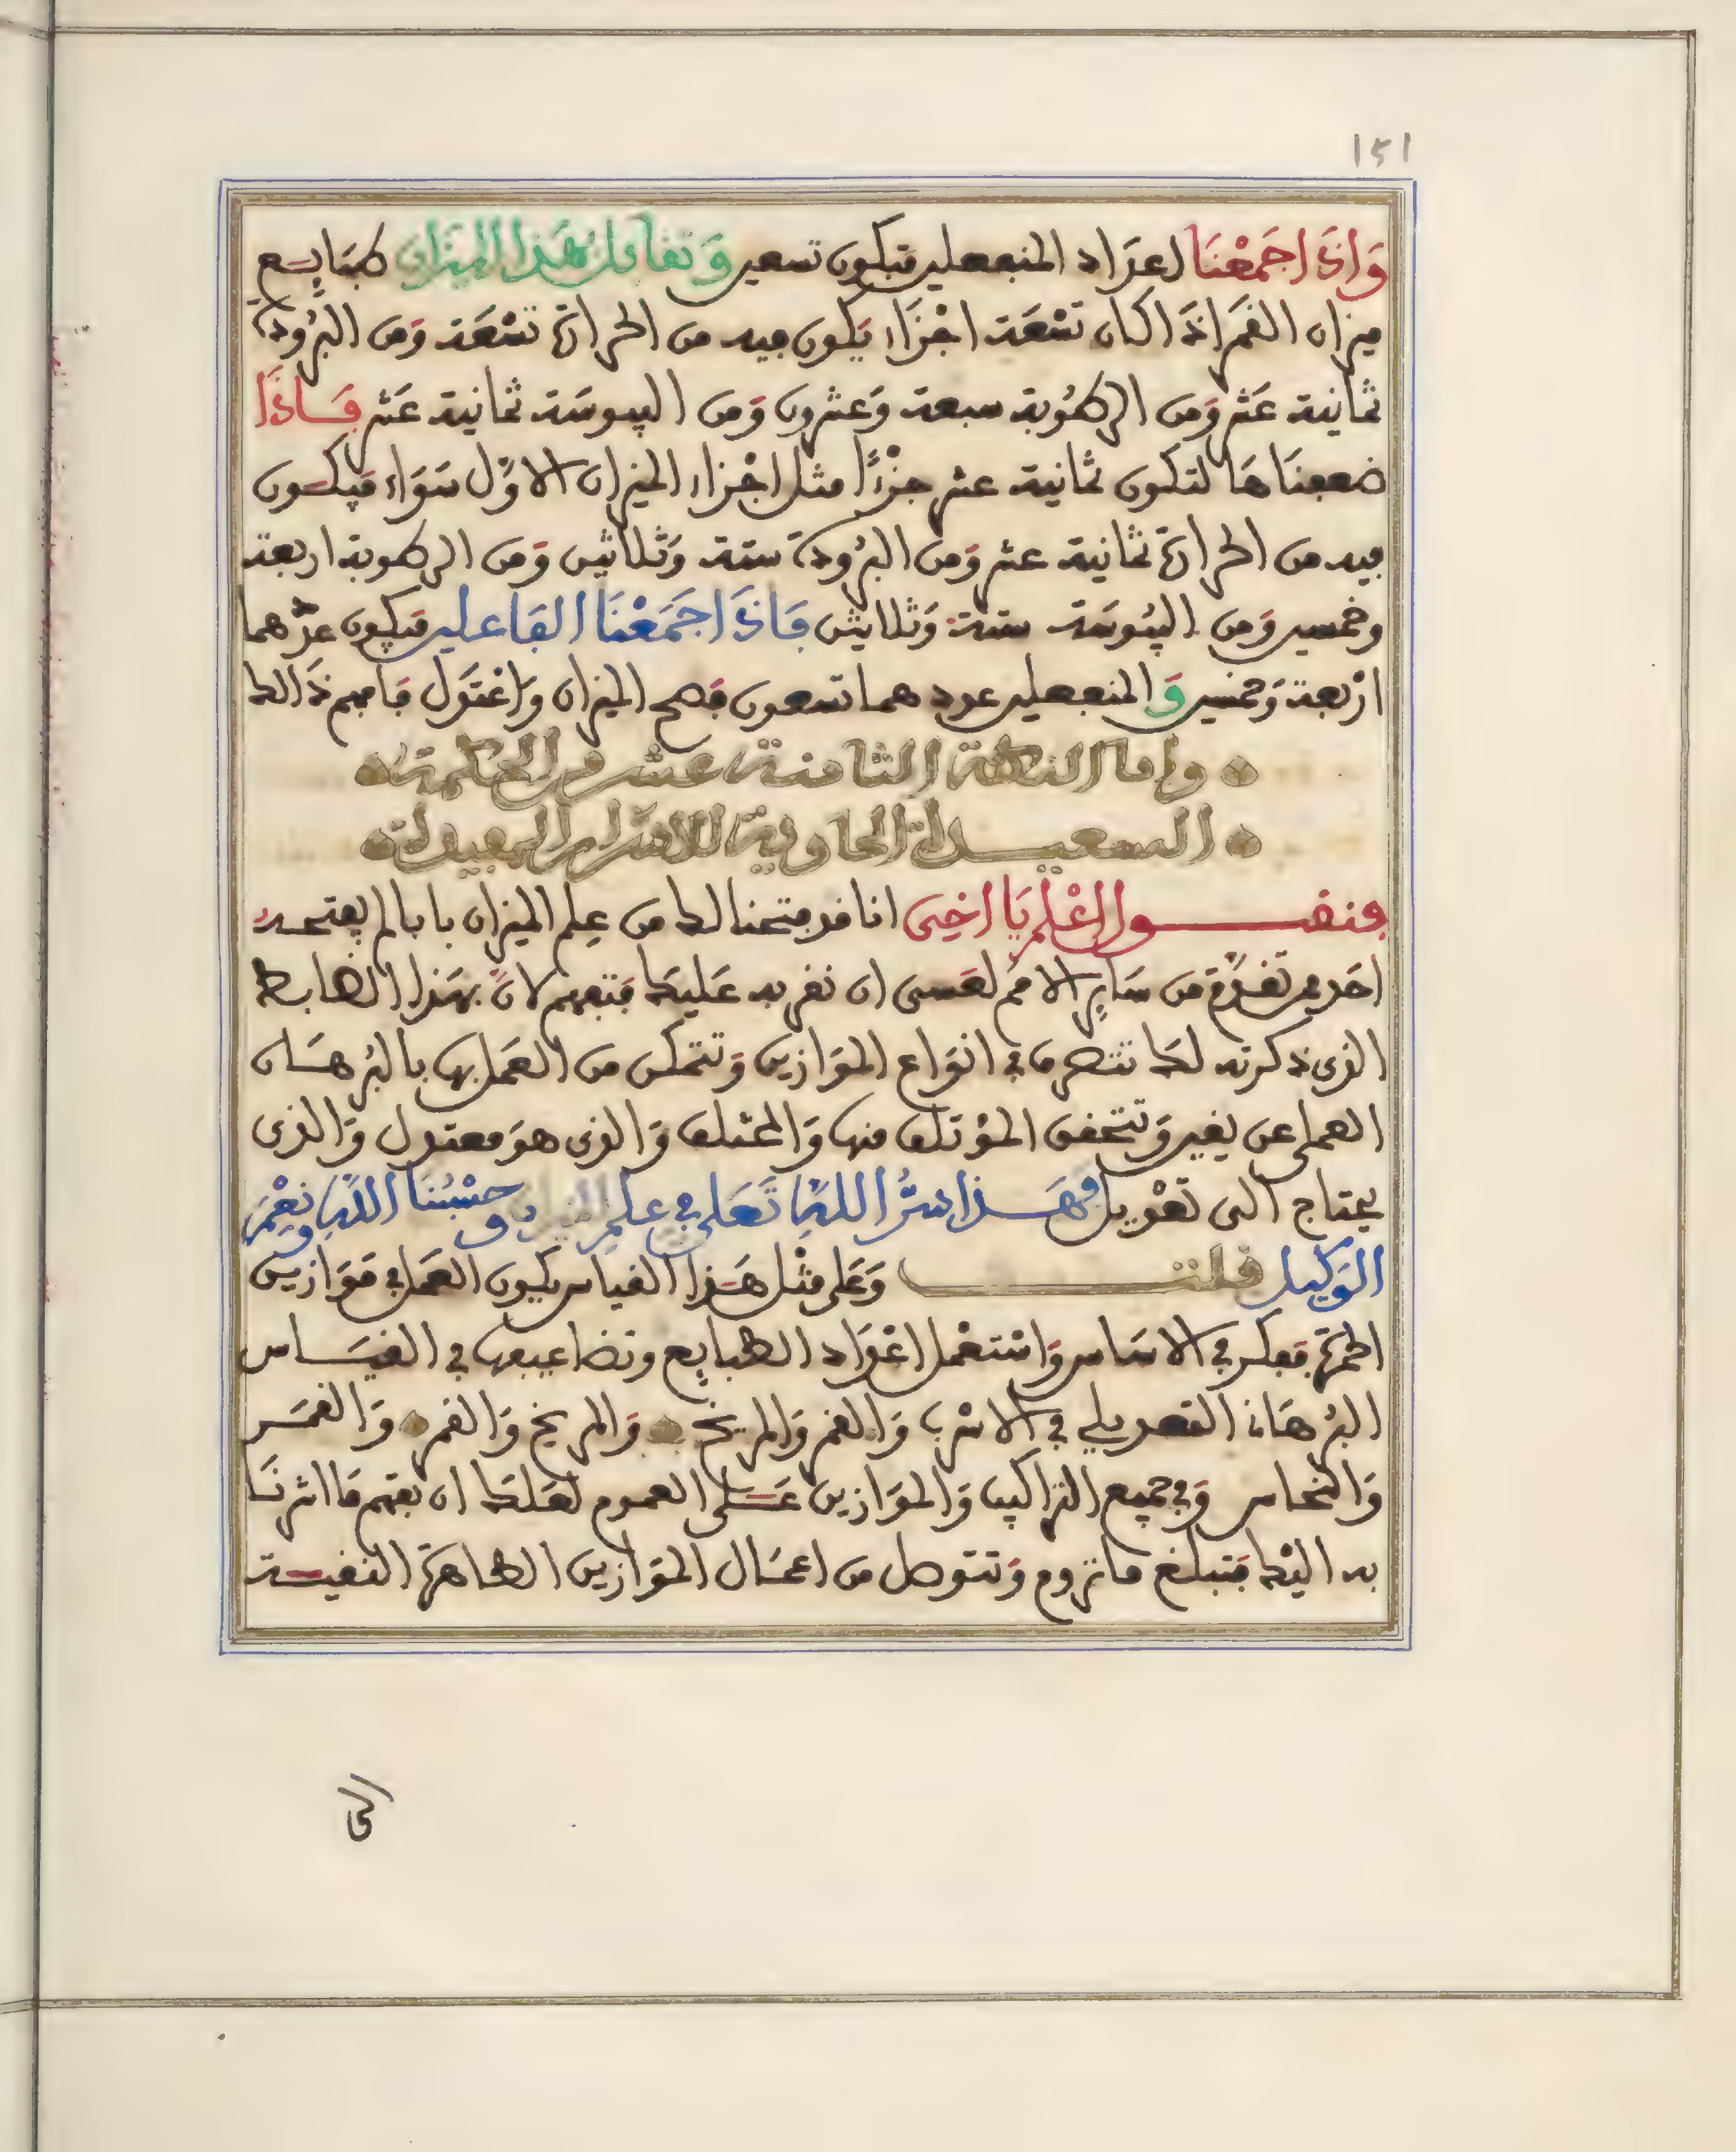 ١٥١
وَاذَا جَمَعْنَا اعداد المنفعلين فيكون تسعين وَتقابل هَذا الميزان طبَايع
ميزان القمَر اذَا كان تسْعَة اجْزَاء يَكون فيه من الحرارة تسْعَة وَمن البرُودة
ثمانية عَشر وَمن الرطُوبة سبعة وَعشرون وَمن اليبوسَة ثمانية عَشر فَاذَا
ضعفنَاهَا لتكون ثمانية عشر جزْءًا مثل اجْزاء الميزان الاوّل سَوَاء فيكون
فيه من الحرارة ثمانية عشر وَمن البرُودة ستة وَثلاثين وَمن الرطوبة اربعة
وخمسين وَمن اليبُوسَة ستة وَثلاثين فَاذَا جَمَعْنَا الفَاعلين فيكون عدّهما
ارْبعة وَخمسين وَالمنفعلين عددهما تسعون فصح الميزان وَاعْتدَل فَافهم ذَالك
واما النكتة الثامنة عشر من الحكمة
السعيدة الحاوية للاسرار المفيدة
فنقول اعْلم يَا اخِي انا قد فتحنا لك من عِلم الميزان بابا لم يفتحه
احَد ممن تقدّم من سَايِر الامَم لعَسى ان نقربه عَليك فتفهم لانّ بهَذا الضابط
الذى ذكرته لك تتصرف في انوَاع الموَازين وَتتمكن من العمَل بها بالبُرهَان
العملى عن يقين وَتتحقق المؤتلف منها وَالمختلف وَالذى هوَ معتدل وَالذى
يحتاج الى تعْديل فهَذا سرُّ اللهِ تَعَلى في علم الميزان وحسْبُنَا اللهُ وَنِعْمَ
الوَكيل قلت وَعَلى مثْل هَذا القياس يكون العمَل في مَوَازين
الحمرَة ففكر في الاسَاس وَاسْتعْمل اعْدَاد الطبايِع وتضاعيفها في القيَاس
البُرهَان التعديلي في الاسْرب وَالقمر وَالمريخ وَالمريخ وَالقمر وَالقمَر
وَالنحاس وَفي جميع التراكيب وَالموَازين عَلى العموم لعَلك ان تفهم مَا اشرنَا
به اليْك فتبلغ ما تروم وَتتوصل من اعمَال الموَازين الطاهرة النفيسة
الى